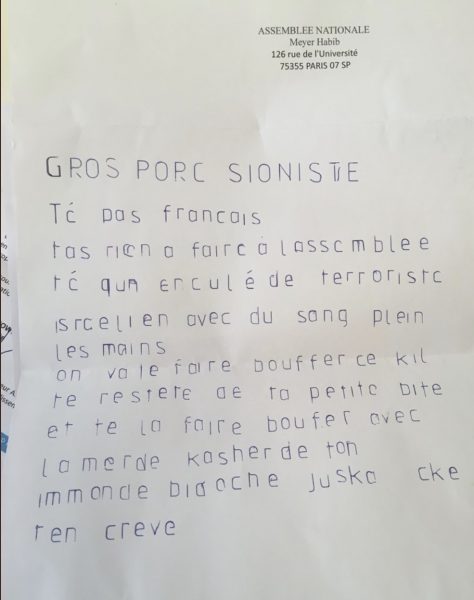 ASSEMBLEE NATIONALE
Meyer Habib
126 rue de l'Université
75355 PARIS 07 SP
GROS PORC SIONISTE
Té pas francais
tas rien a faire à lassemblee
té qun enculé de terroriste
israelien avec du sang plein
les mains
on va le faire bouffer ce kil
te restete de ta petite bite
et te la faire boufer avec
la merde kasher de ton
immonde bidoche juska cke
ten creve